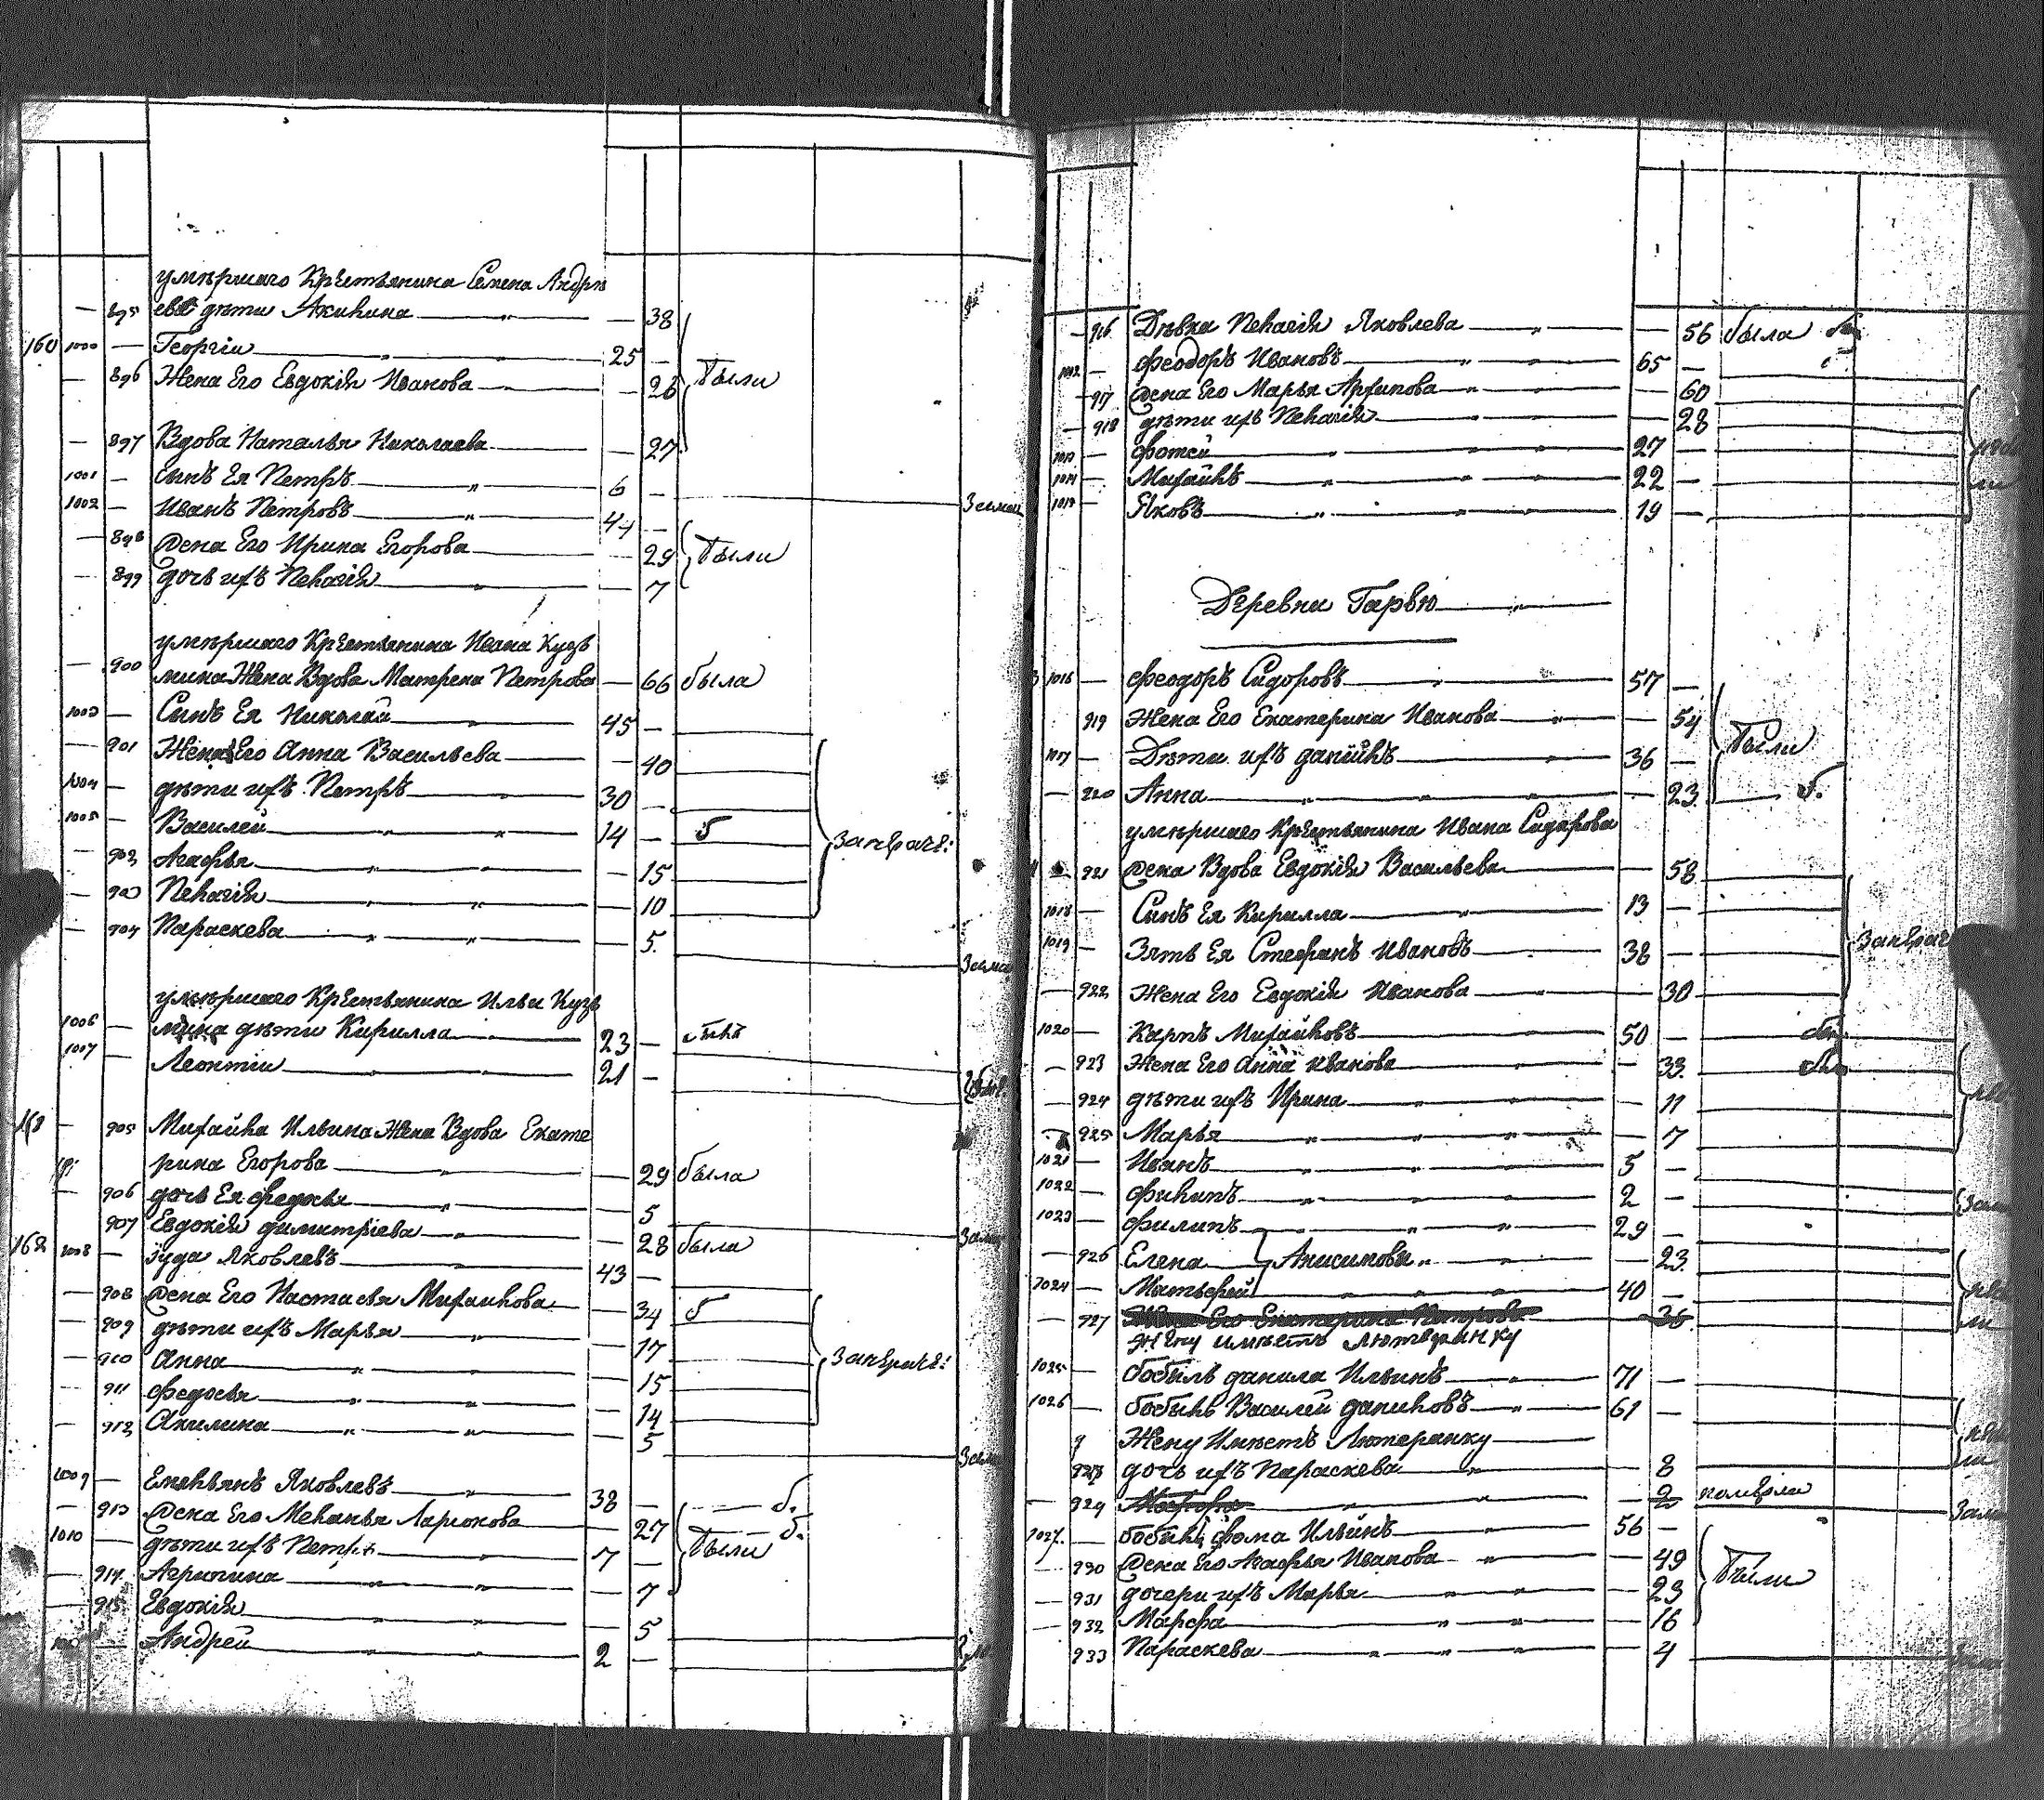 умершаго Крестьянина Семена Андре
895 ева дѣти Акилина — 38
160 1000 — Георгіи 25 —
896 Жена Его Евдокія Иванова — 26 были
897 Вдова Наталья Николаева — 27
1001 — сынъ Ея Петръ 6 —
1002 — Иванъ Петровъ 44 —
898 Жена Его Ирина Егорова — 29 были
899 дочь ихъ Пелагія — 7
умершаго Крестьянина Ивана Кузь
900 мина Жена Вдова Матрена Петрова — 66 была
1003 — Сынъ Ея Николай 45 —
901 Жена Его Анна Васильева — 40
1004 — дѣти ихъ Петръ 30 —
1005 — Василей 14 — б
902 Агафья — 15
903 Пелагія — 10
904 Параскева — 5.
умершаго Крестьянина Ильи Кузь
1006 — мина дѣти Кирилла 23 —
1007 — Леонтіи 21 —
905 Михайла Ильина Жена Вдова Екате
рина Егорова — 29 была
906 дочь Ея Федосья — 5
907 Евдокія Димитріева — 28 была
162 1008 — Іуда Яковлевъ 43 —
908 Жена Его Настасья Михайлова — 34 б
909 дѣти ихъ Марья — 17
910 Анна — 15
911 Федосья — 14
912 Акилина — 5
1009 — Емельянъ Яковлевъ 38 —
913 Жена Его Меланья Ларіонова — 27 были
1010 — дѣти ихъ Петръ 7 —
914 Агрипина — 7
915 Евдокія — 5
Андрей 2 —
916 Дѣвка Пелагія Яковлева — 56 была
1012 — Феодоръ Ивановъ 65 —
917 Жена Его Марья Архипова — 60
918 дѣти ихъ Пелагія — 28
1013 — Фотей 27 —
1014 — Михайлъ 22 —
1015 — Яковъ 19 —
Деревни Гарвю
1016 — Феодоръ Сидоровъ 57 —
919 Жена Его Екатерина Иванова — 54
1017 — Дѣти ихъ Данійлъ 36 — были
920 Анна — 23. б.
умершаго Крестьянина Ивана Сидорова
921 Жена Вдова Евдокія Васильева — 58
1018 — Сынъ Ея Кирилла 13 —
1019 — Зять Ея Стефанъ Ивановъ 38 —
922 Жена Его Евдокія Иванова — 30
1020 — Карпъ Михайловъ 50 —
923 Жена Его Анна Иванова — 33.
924 дѣти ихъ Ирина — 11
925 Марья — 7
1021 — Иванъ 5 —
1022 — Филипъ 2 —
1023 — Филипъ 29 —
926 Елена Анисимовы — 23.
1024 — Матвѣй 40 —
927 Жена Его Екатерина Петрова 36
Жену имѣетъ Лютеранку
1025 — бобыль Данила Ильинъ 71 —
1026 — бобыль Василей Даниловъ 61 —
Жену Имѣетъ Лютеранку
928 дочь ихъ Параскева — 8
929 — 2
1027. — бобыль Фома Ильинъ 56 —
930 Жена Его Агафья Иванова — 49
931 дочери ихъ Марья — 23 были
932 Марфа — 16
933 Параскева — 4